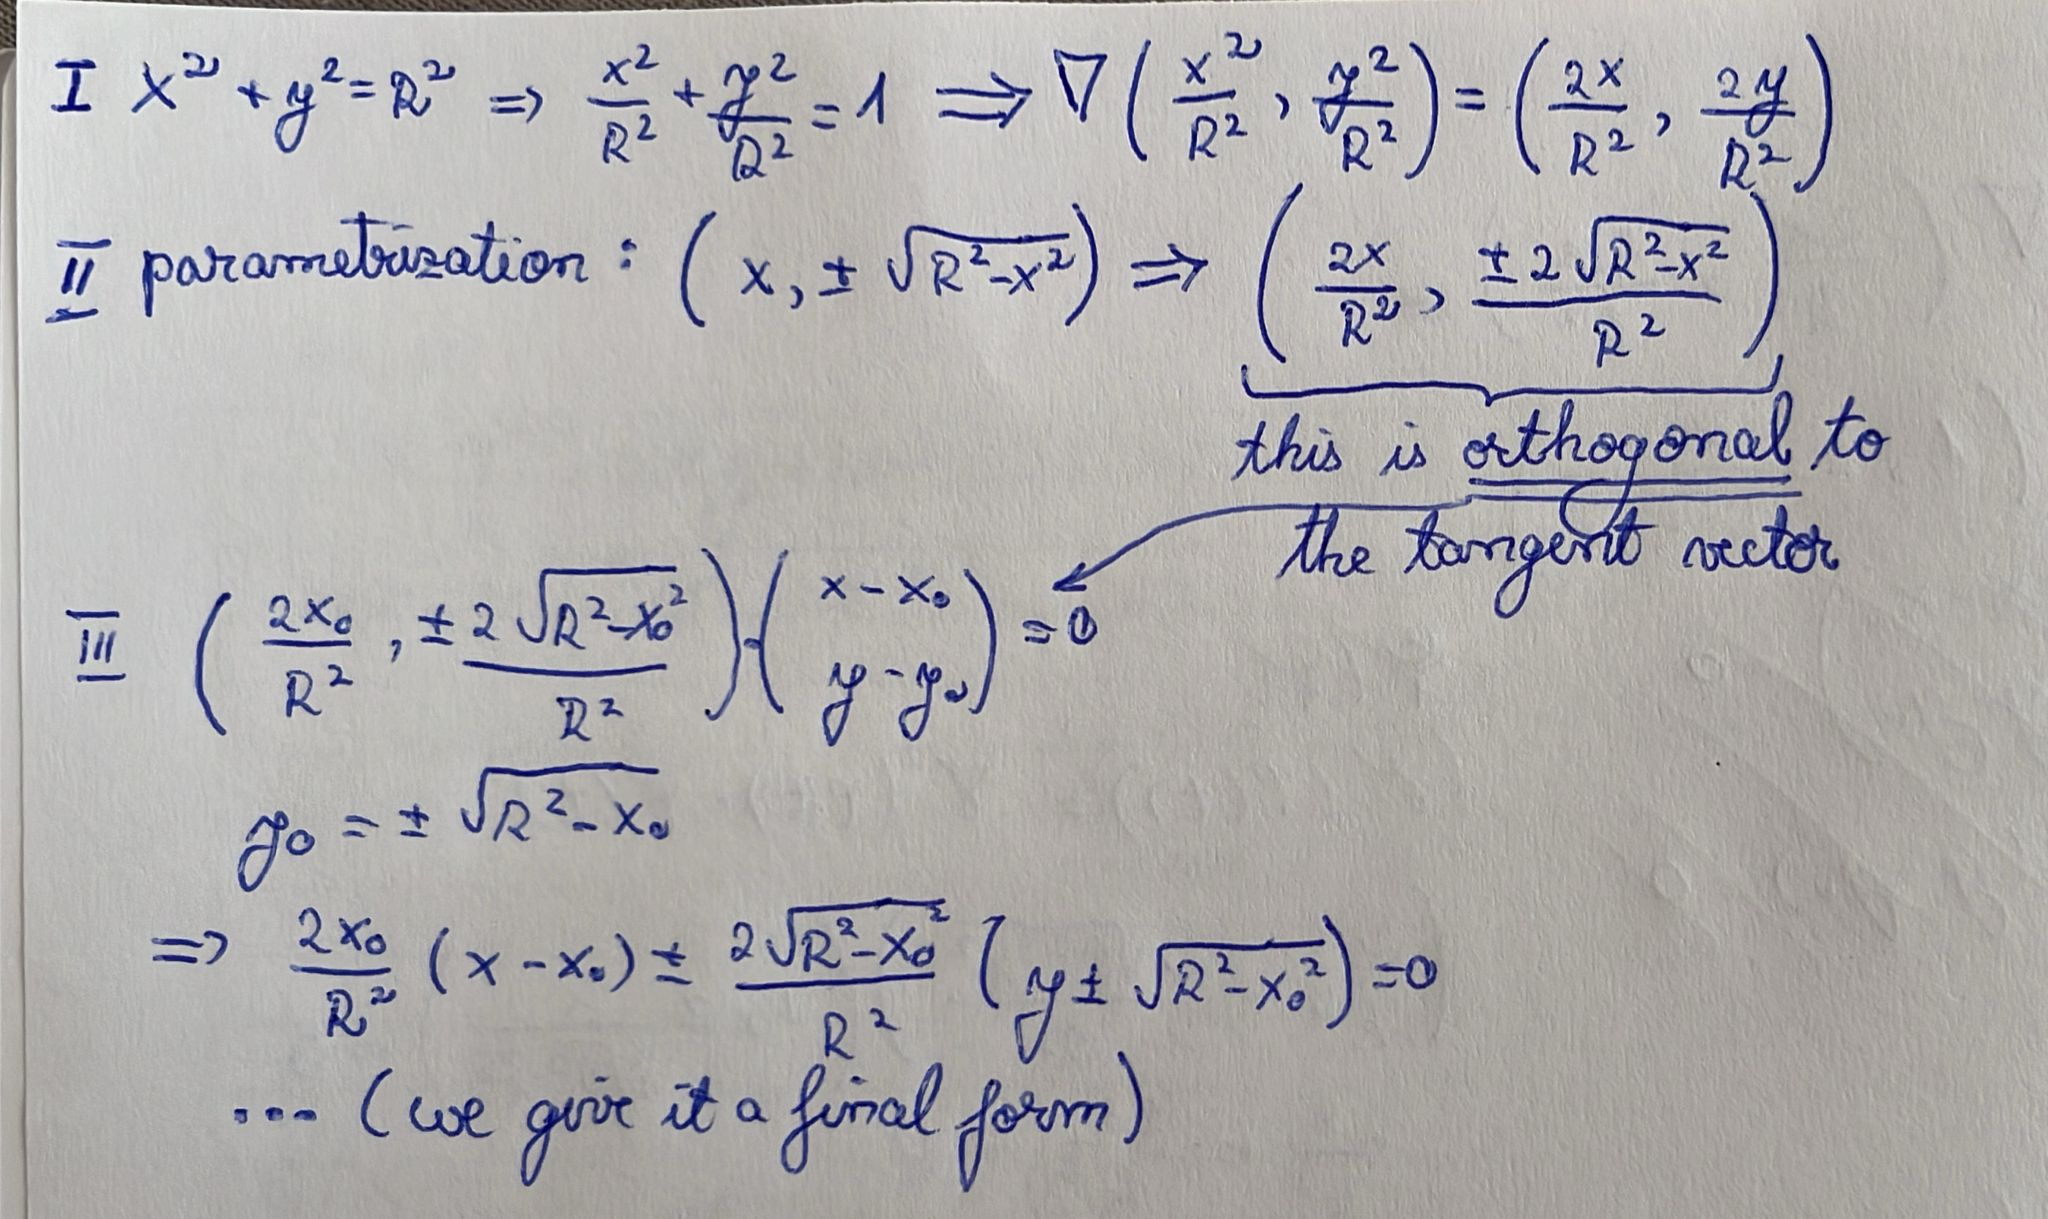 I x² + y² = R² => x²/R² + y²/R² = 1 => ∇(x²/R², y²/R²) = (2x/R², 2y/R²)
II parametrization : (x, ± √(R²-x²)) => (2x/R², ±2√(R²-x²)/R²)
this is orthogonal to
the tangent vector
III (2x₀/R², ±2√(R²-x₀²)/R²)·(x-x₀ y-y₀) = 0
y₀ = ± √(R²-x₀)
=> 2x₀/R² (x-x₀) ± 2√(R²-x₀²)/R² (y ± √(R²-x₀²)) = 0
... (we give it a final form)